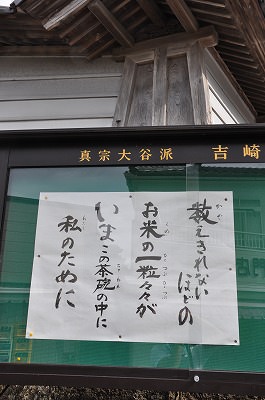 真宗大谷派 吉崎
数えきれない
ほどの
お米の一粒々々が
いまこの茶碗の中に
私のために